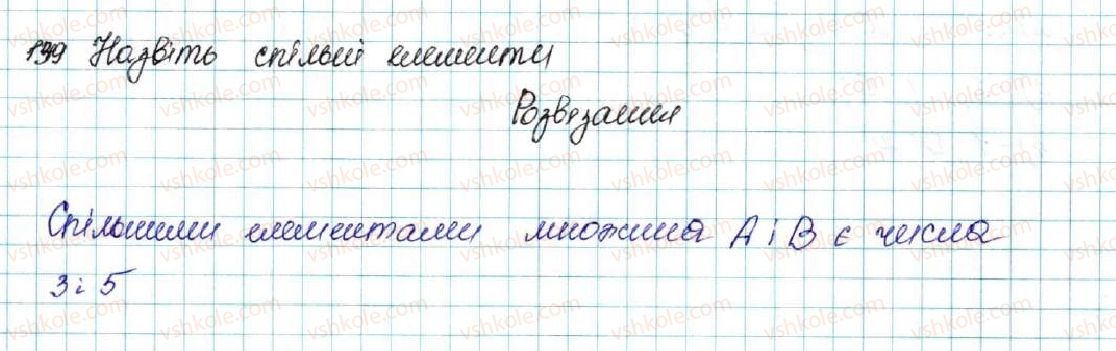 199 Назвіть спільні елементи
Розвязання
Спільними елементами множина А і В є числа
3 і 5